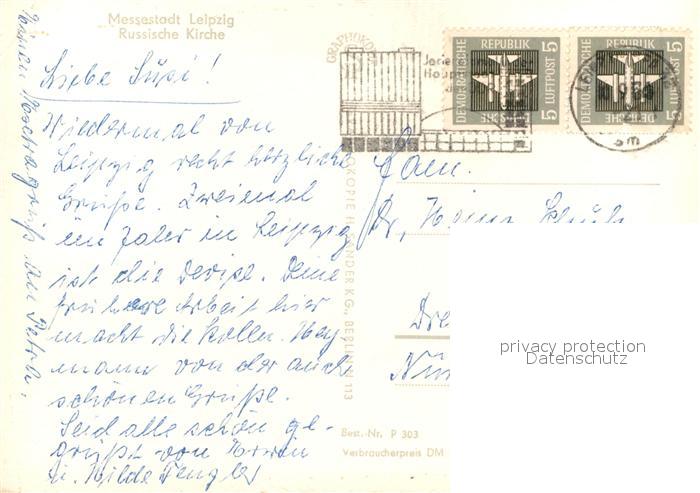 Messestadt Leipzig
Russische Kirche
Liebe Susi!
Wiedermal von
Leipzig recht herzliche
Grüße. Zweimal
im Jahr in Leipzig
ist die Devise. Deine
frühere Arbeit hier
macht die Kolln.
mann von der auch
schönen Grüße.
Seid alle schön ge-
grüßt von Erwin
u. Hilde Fengler
an Petra.
GRAPHOKOPIE H. SANDER K.G., BERLIN N 113
DEMOKRATISCHE
REPUBLIK
5
LUFTPOST
DEUTSCHE
DEMOKRATISCHE
REPUBLIK
5
LUFTPOST
DEUTSCHE
Fam.
Dr. Heinz
Dre
Nür
Best.-Nr. P 303
Verbraucherpreis DM
privacy protection
Datenschutz